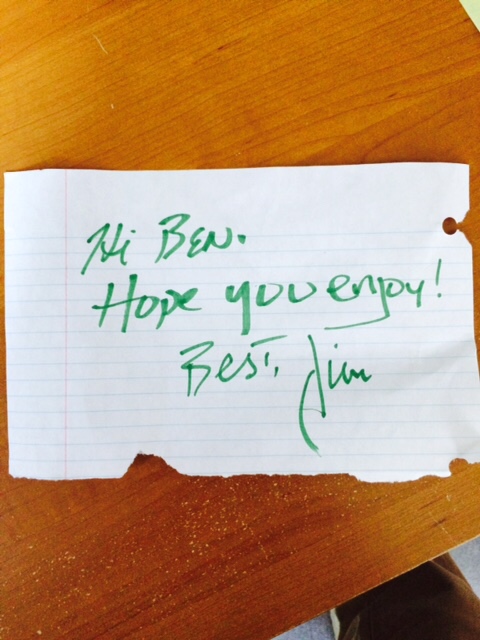 Hi Ben.
Hope you enjoy!
Best, Jim